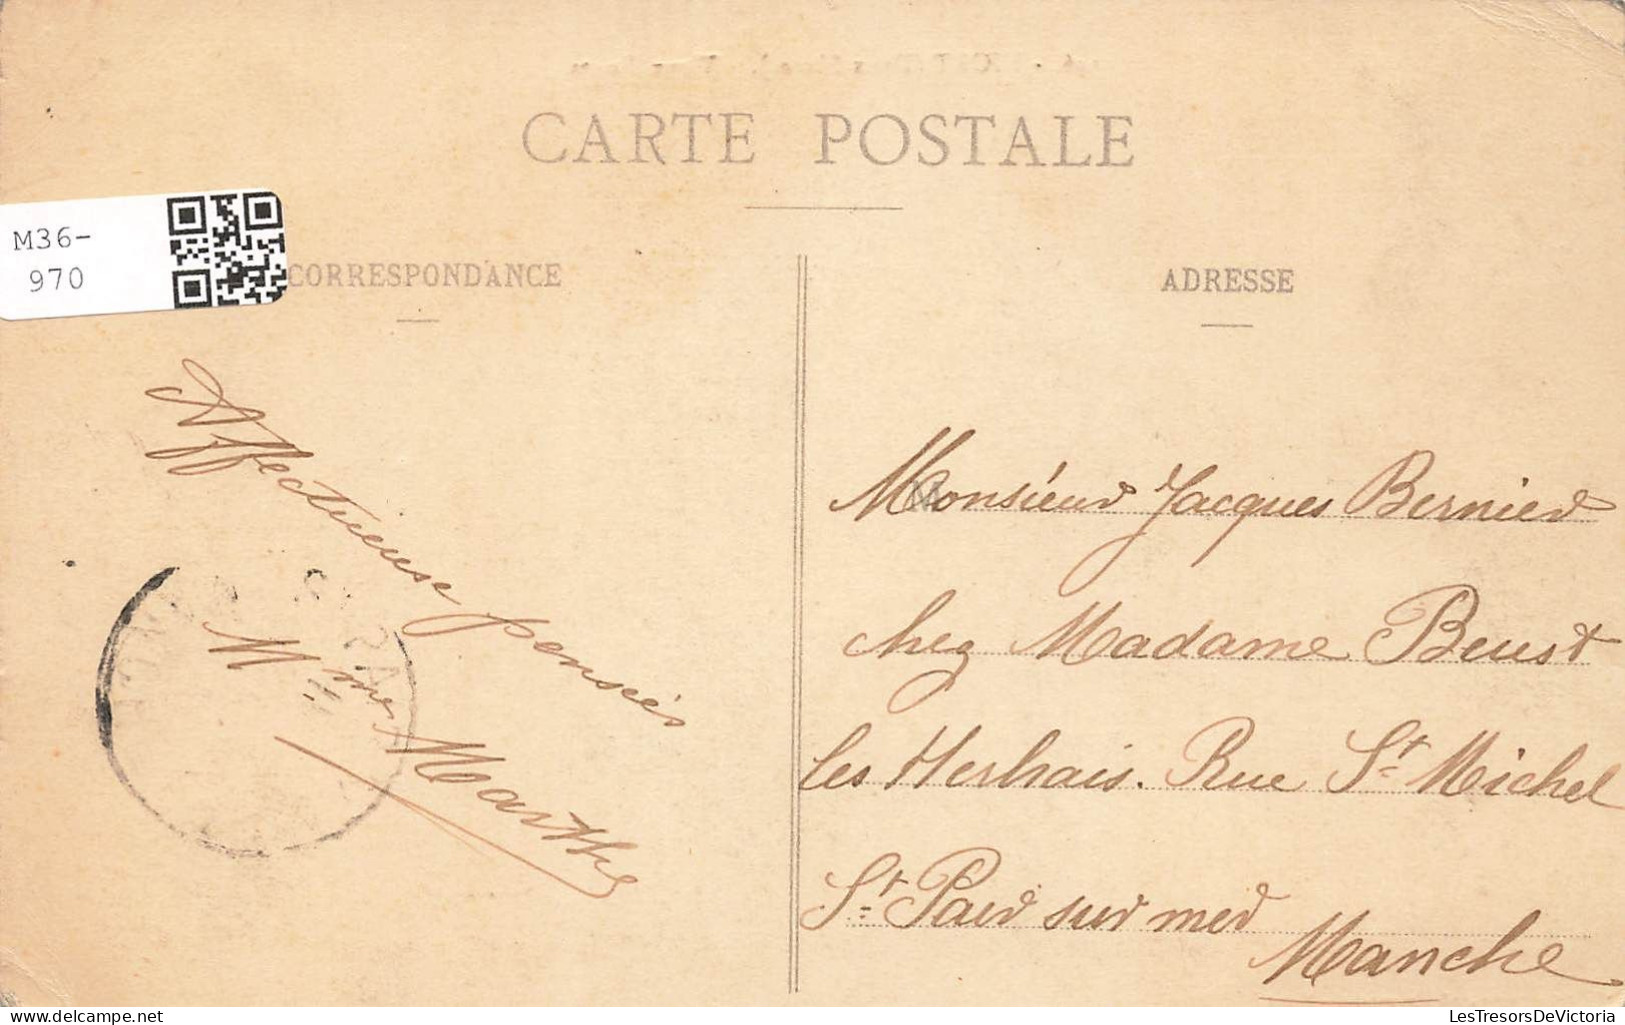 CARTE POSTALE
M36-
970
CORRESPONDANCE
ADRESSE
Affectueuse pensées
Mme Marthe
Monsieur Jacques Bernier
chez Madame Beust
les Herbais. Rue St Michel
St Pair sur mer
Manche
delcampe.net
LesTresorsDeVictoria